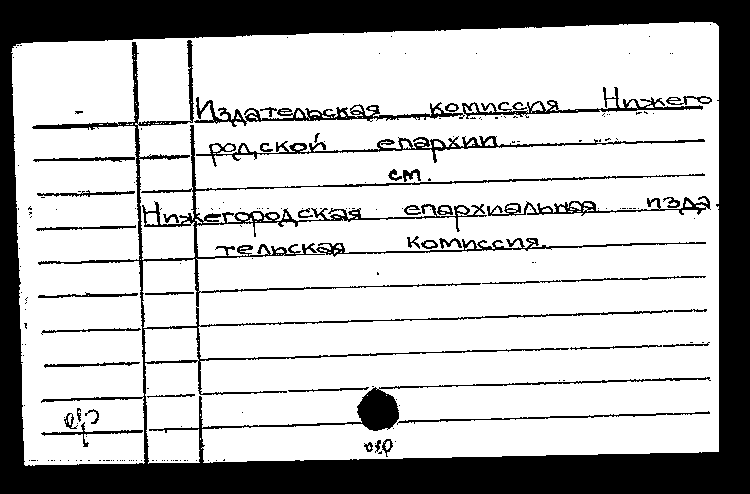 Издательская комиссия Нижего
родской епархии
см.
Нижегородская епархиальная изда-
тельская комиссия.